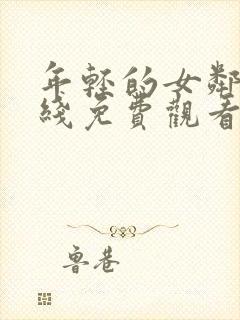 年輕的女鄰
綫免費觀看
鲁巷